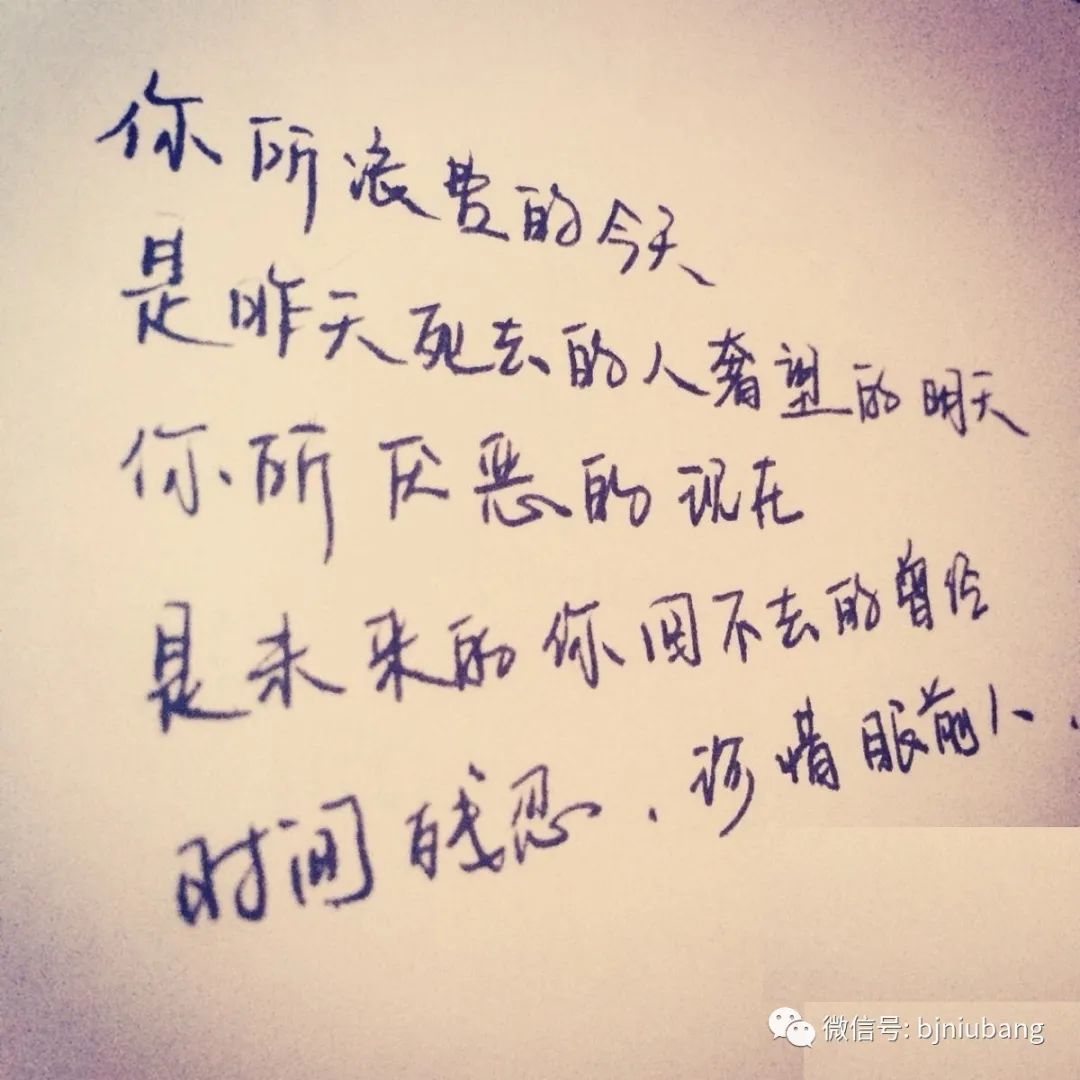 你所浪费的今天
是昨天死去的人奢望的明天
你所厌恶的现在
是未来的你回不去的曾经
时间残忍.珍惜眼前人.
微信号: bjniubang